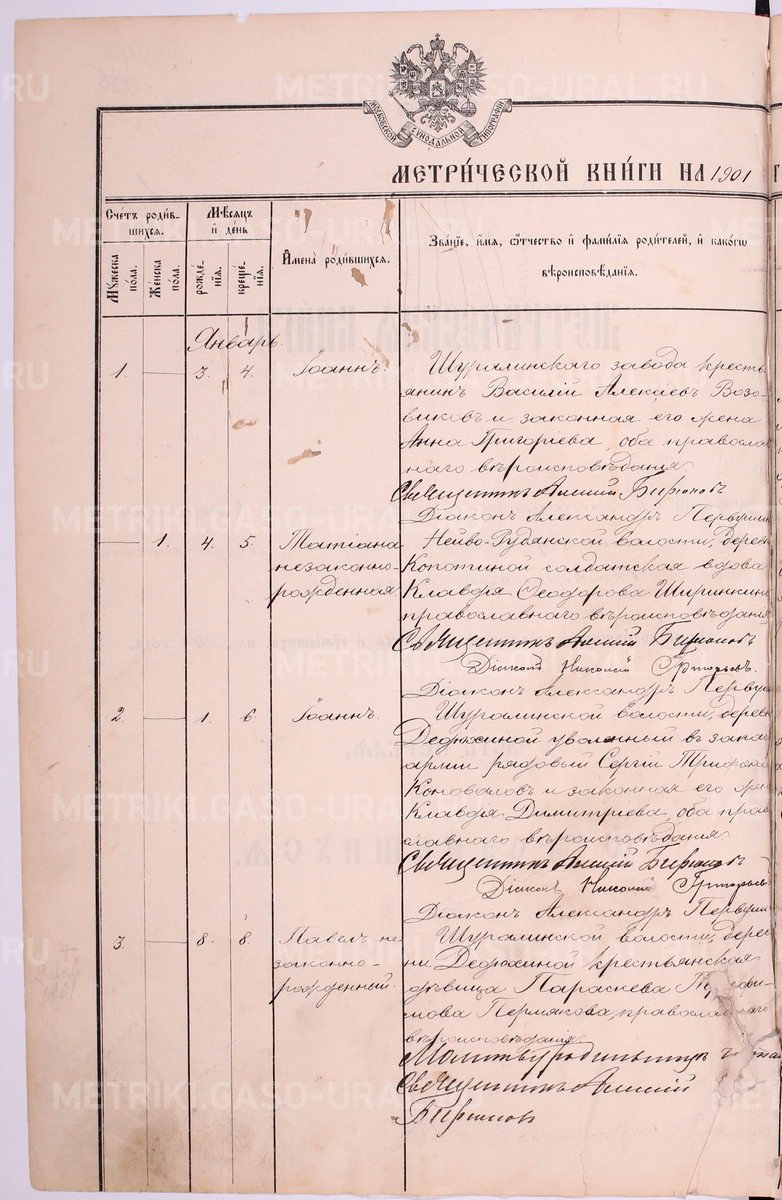 МОСКОВСКОЙ СѴНОДАЛЬНОЙ ТИПОГРАФІИ
МЕТРИ́ЧЕСКОЙ КНИ́ГИ НА 1901
Счетъ роди́в-
шихся.
Мѣсяцъ
и҆ де́нь
И҆мена̀ роди́вшихся.
Зва́нїе, и҆́мя, ѻ҆́тчество и҆ фами́лїя роди́телей, и҆ како́гѡ
вѣроисповѣ́данїя.
Му́жеска
по́ла.
Же́нска
по́ла.
рожде́-
нїя.
креще́-
нїя.
Январь.
1. 3. 4. Іоаннъ.
Шуралинскаго завода кресть-
янинъ Василій Алексѣевъ Возо-
виковъ и законная его жена
Анна Григорьева, оба православ
наго вѣроисповѣданія
Священникъ Бирюковъ
Діаконъ Александръ Первушин
1. 4. 5. Татіана
незаконно-
рожденная.
Нейво-Рудянской волости, дерев
Копотиной солдатская вдова
Клавдія Ѳеодорова Ширинкина
православнаго вѣроисповѣданія
Священникъ Бирюковъ
Діаконъ Никоній Григорьевъ.
Діаконъ Александръ Первуши
2. 1. 6. Іоаннъ.
Шуралинской волости, деревн
Дедюхиной уволенный въ запас
арміи рядовый Сергій Трифоно
Коноваловъ и законная его жен
Клавдія Димитріева, оба прав
славнаго вѣроисповѣданія
Священникъ Бирюковъ
Діаконъ Никоній Григорьевъ
Діаконъ Александръ Первуши
3. 8. 8. Павелъ не-
законно-
рожденный.
Шуралинской волости, дерев
ни Дедюхиной крестьянская
дѣвица Параскева
мова Пермякова, православнаго
вѣроисповѣданія.
Молитву родильницѣ читал
Священникъ
Бирюковъ
1901
METRIKI.GASO-URAL.RU